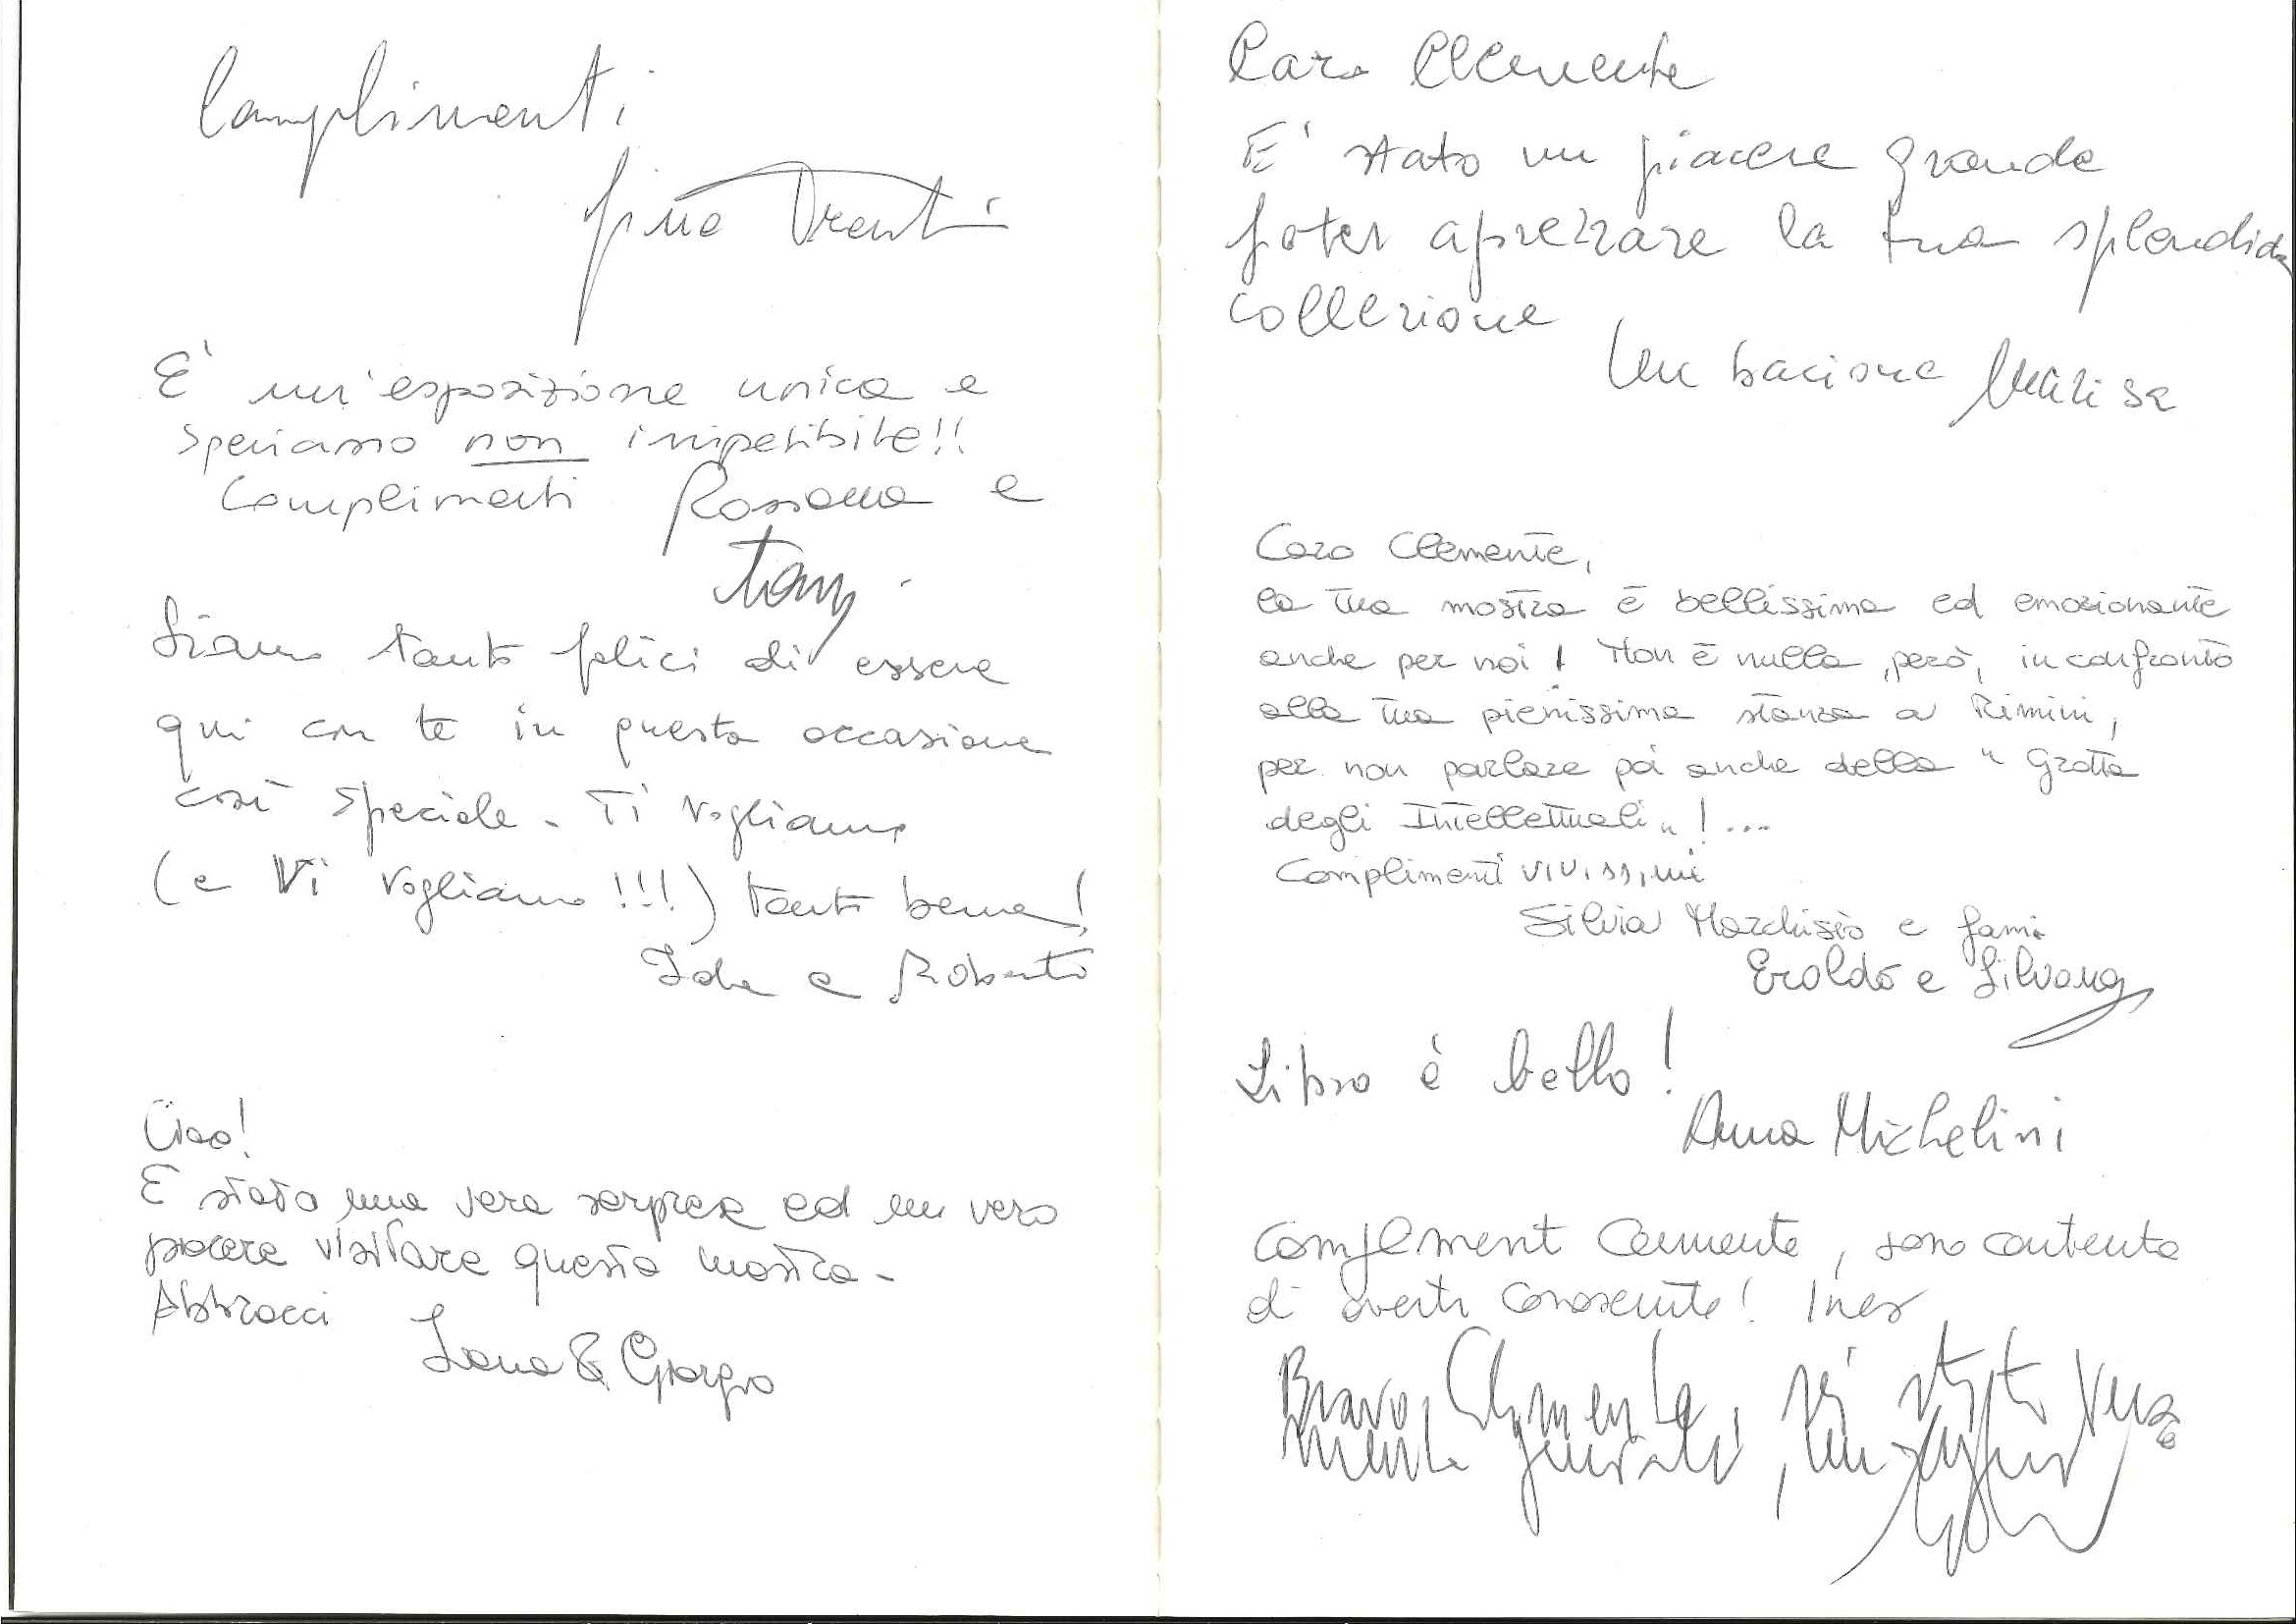 Complimenti
Gino Trenti
E' un'esposizione unica e
speriamo non irripetibile!!
Complimenti Rossana e
Tony.
Siamo tanto felici di essere
qui con te in questa occasione
così speciale - Ti vogliamo
(e Vi vogliamo!!!) tanto bene!
Ida e Roberto
Ciao!
E stata una vera sorpresa ed un vero
piacere visitare questa mostra -
Abbracci
& Giorgio
Caro Clemente
E' stato un piacere grande
poter aprezzare la tua splendida
collezione
Un bacione Marisa
Caro Clemente,
la tua mostra è bellissima ed emozionante
anche per noi! Non è nulla, però, in confronto
alla tua pienissima stanza a Rimini,
per non parlare poi anche della "Grotta
degli Intellettuali"!...
Complimenti vivissimi
Silvia Marchisio e fam.
Eraldo e Silvana
Libro è bello!
Anna Michelini
Complement Clemente, sono contenta
di averti conosciuto! Ines
Bravo Clemente, sei stato vera
mente